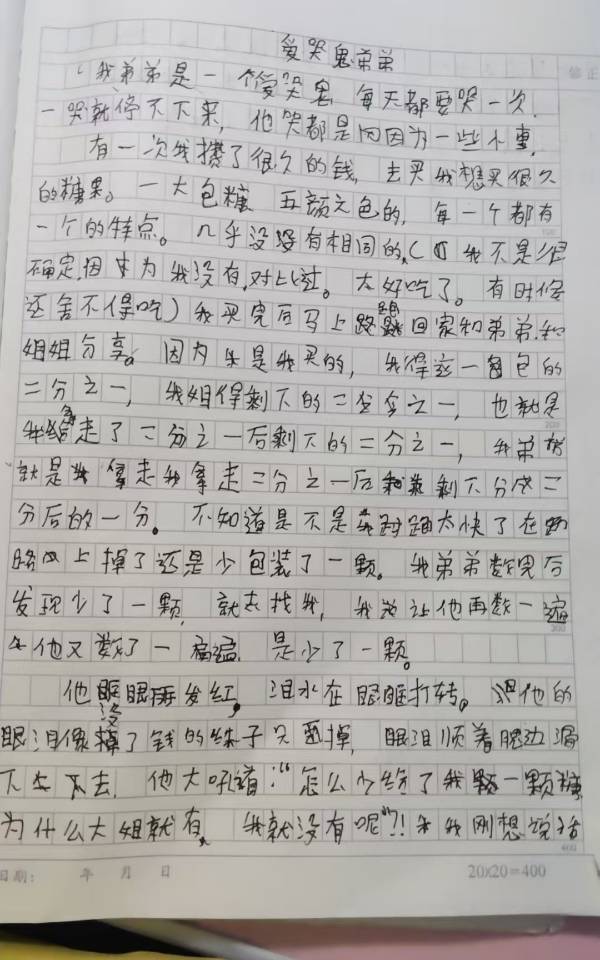 爱哭鬼弟弟
我弟弟是一个爱哭鬼,每天都要哭一次,
一哭就停不下来,他哭都是因为一些小事,
有一次我攒了很久的钱,去买我想买很久
的糖果。一大包糖,五颜六色的,每一个都有
一个的特点。几乎没有相同的,(我不是很
确定,因为我没有对比过。太好吃了。有时候
还舍不得吃)我买完后马上跑回家和弟弟和
姐姐分享。因为是我买的,我得这一包的
二分之一,我姐得剩下的二分之一,也就是
我拿走了二分之一后剩下的二分之一,我弟
就是我拿走二分之一后剩下分成二
分后的一分。不知道是不是我跑太快了在
路上掉了还是少包装了一颗。我弟弟数完后
发现少了一颗,就去找我,我让他再数一遍
他又数了一遍,是少了一颗。
他眼眶发红,泪水在眼眶打转。他的
眼泪像没了线的珠子只要掉,眼泪顺着腮边
下去,他大吼道:“怎么少给了我一颗糖
为什么大姐就有,我就没有呢”?!我刚想说话
日期: 年 月 日
20×20=400